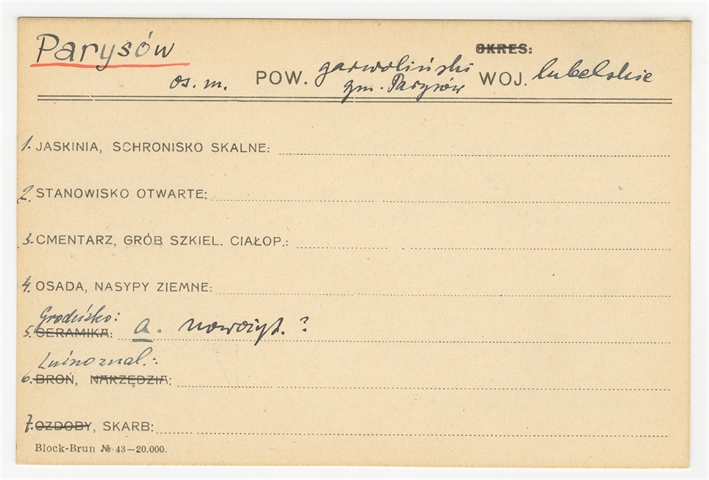 Parysów
OKRES:
os. m. POW. garwoliński WOJ. lubelskie
gm. Parysów
1. JASKINIA, SCHRONISKO SKALNE:
2. STANOWISKO OTWARTE:
3. CMENTARZ, GRÓB SZKIEL. CIAŁOP.:
4. OSADA, NASYPY ZIEMNE:
Grodzisko:
5. CERAMIKA: a. nowożyt.?
Luźno znal.:
6. BROŃ, NARZĘDZIA:
7. OZDOBY, SKARB:
Block-Brun № 43—20.000.